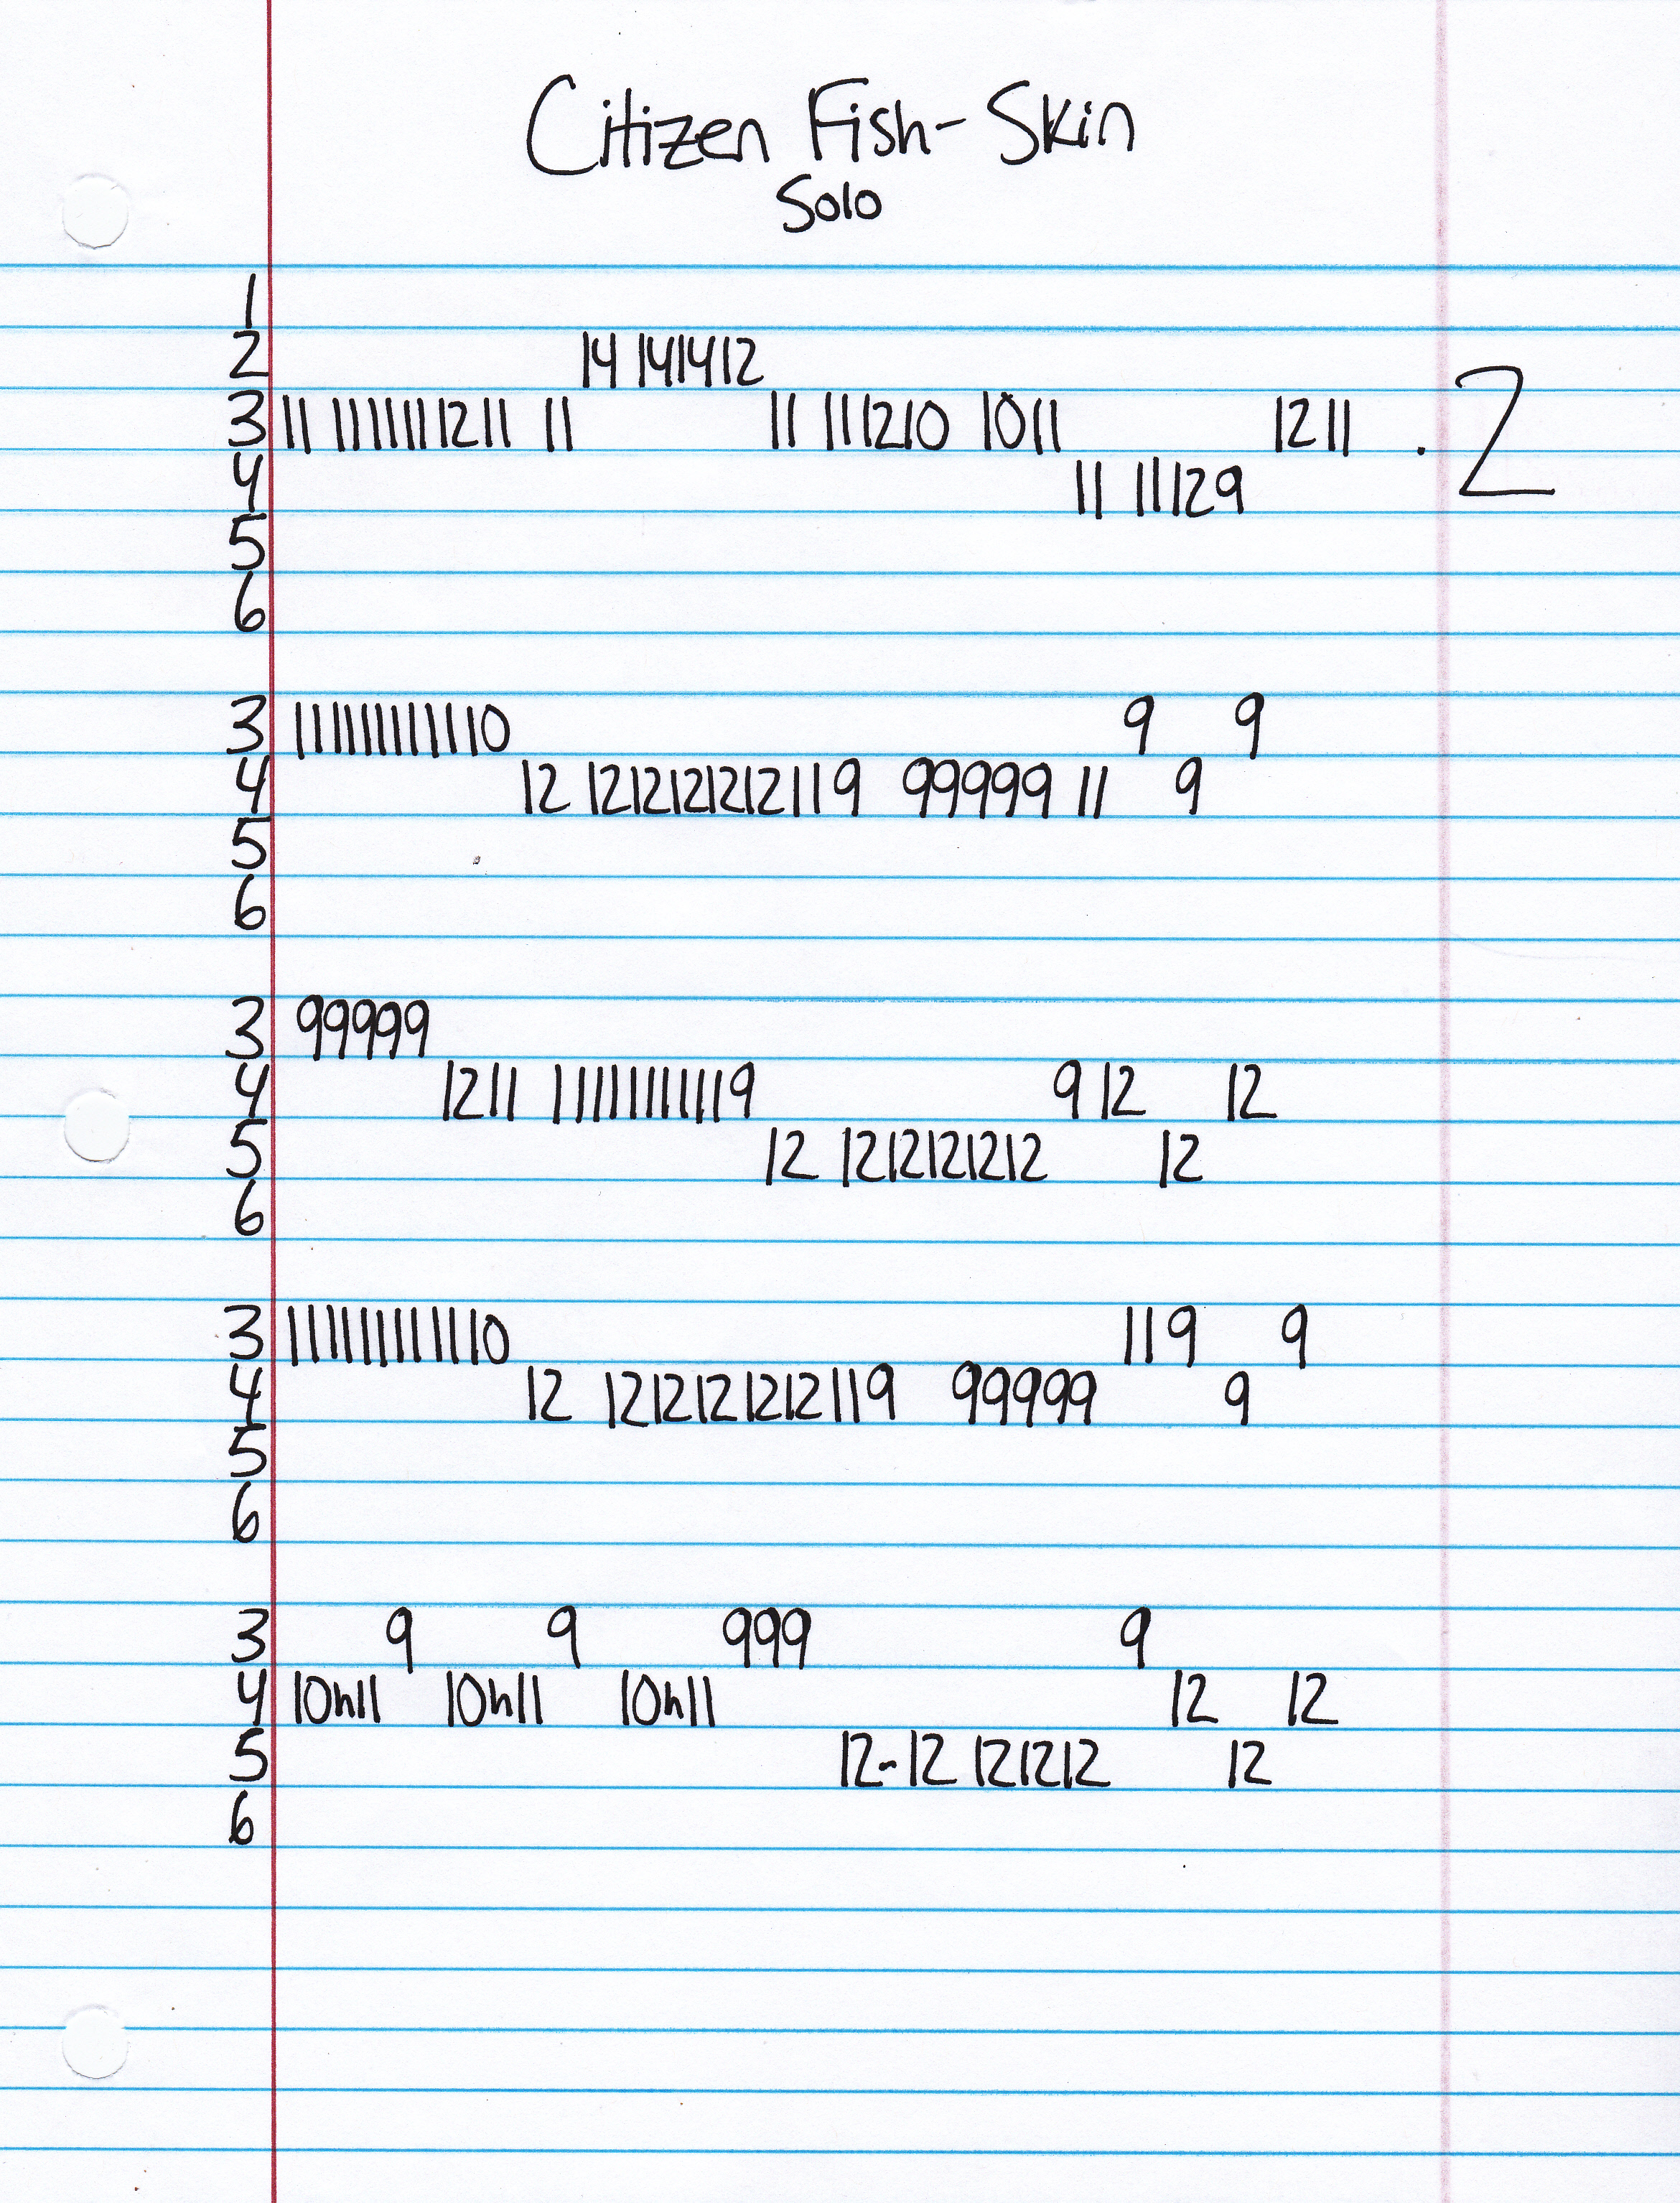 Citizen Fish-Skin
Solo
1
2 14 14 14 12
3 11 11 11 11 11 12 11 11 11 11 12 10 10 11 12 11 . 2
4 11 11 12 9
5
6
3 11 11 11 11 11 10 9 9
4 12 12 12 12 12 12 11 9 9 9 9 9 9 11 9
5
6
3 9 9 9 9 9
4 12 11 11 11 11 11 11 9 9 12 12
5 12 12 12 12 12 12 12
6
3 11 11 11 11 11 10 11 9 9
4 12 12 12 12 12 12 11 9 9 9 9 9 9 9
5
6
3 9 9 9 9 9 9
4 10h11 10h11 10h11 12 12
5 12-12 12 12 12 12
6